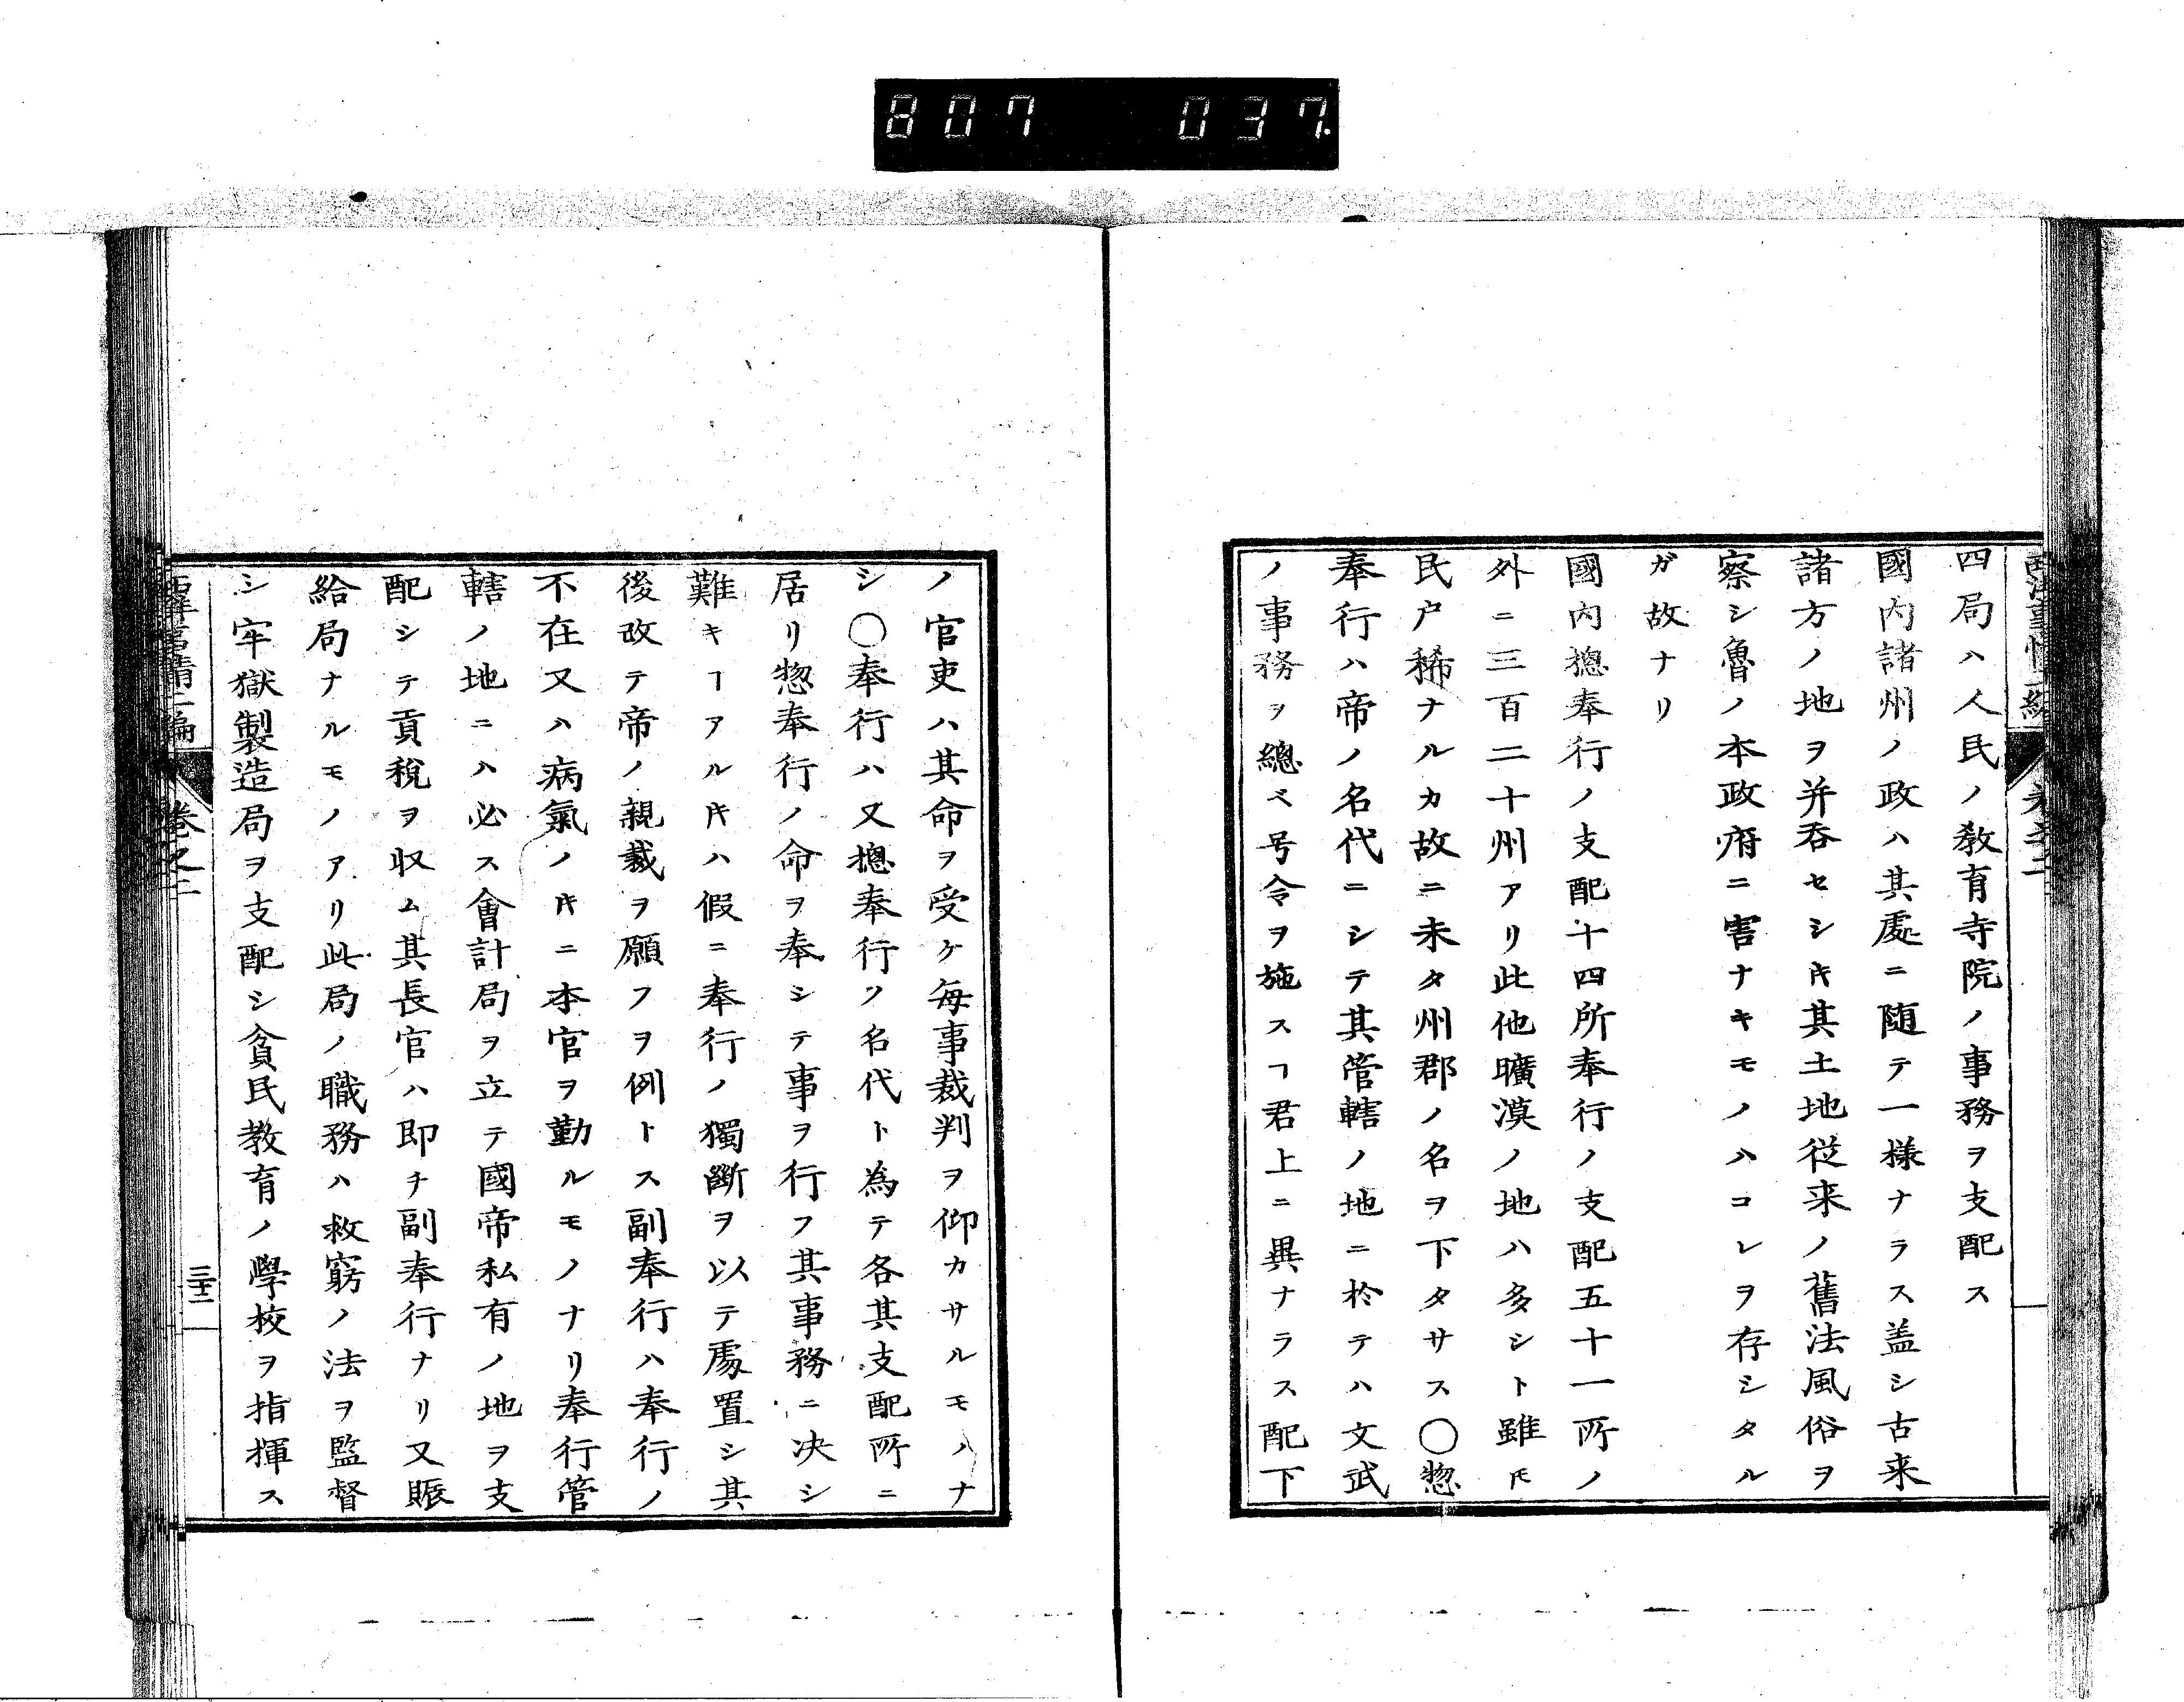 807 037.
四局ハ人民ノ敎育寺院ノ事務ヲ支配ス
國內諸州ノ政ハ其處ニ隨テ一樣ナラス盖シ古来
諸方ノ地ヲ并呑セシキ其土地従来ノ舊法風俗ヲ
察シ魯ノ本政府ニ害ナキモノハコレヲ存シタル
ガ故ナリ
國內摠奉行ノ支配十四所奉行ノ支配五十一所ノ
外ニ三百二十州アリ此他曠漠ノ地ハ多シト雖𪜈
民户稀ナルカ故ニ未タ州郡ノ名ヲ下タサス〇惣
奉行ハ帝ノ名代ニシテ其管轄ノ地ニ於テハ文武
ノ事務ヲ總ベ号令ヲ施スヿ君上ニ異ナラス配下
ノ官吏ハ其命ヲ受ケ毎事裁判ヲ仰カサルモノナ
シ〇奉行ハ又摠奉行ノ名代ト為テ各其支配所ニ
居リ惣奉行ノ命ヲ奉シテ事ヲ行フ其事務ニ决シ
難キヿアルキハ假ニ奉行ノ獨斷ヲ以テ處置シ其
後改テ帝ノ親裁ヲ願フヲ例トス副奉行ハ奉行ノ
不在又ハ病氣ノキニ本官ヲ勤ルモノナリ奉行管
轄ノ地ニハ必ス會計局ヲ立テ國帝私有ノ地ヲ支
配シテ貢税ヲ収ム其長官ハ即チ副奉行ナリ又賑
給局ナルモノアリ此局ノ職務ハ救窮ノ法ヲ監督
シ牢獄製造局ヲ支配シ貧民教育ノ學校ヲ指揮ス
卷之二
三十二